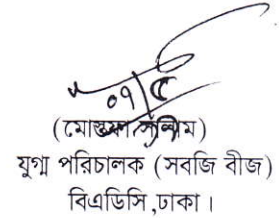 ০৭/৫
(মোস্তফা সেলিম)
যুগ্ম পরিচালক (সবজি বীজ)
বিএডিসি,ঢাকা।